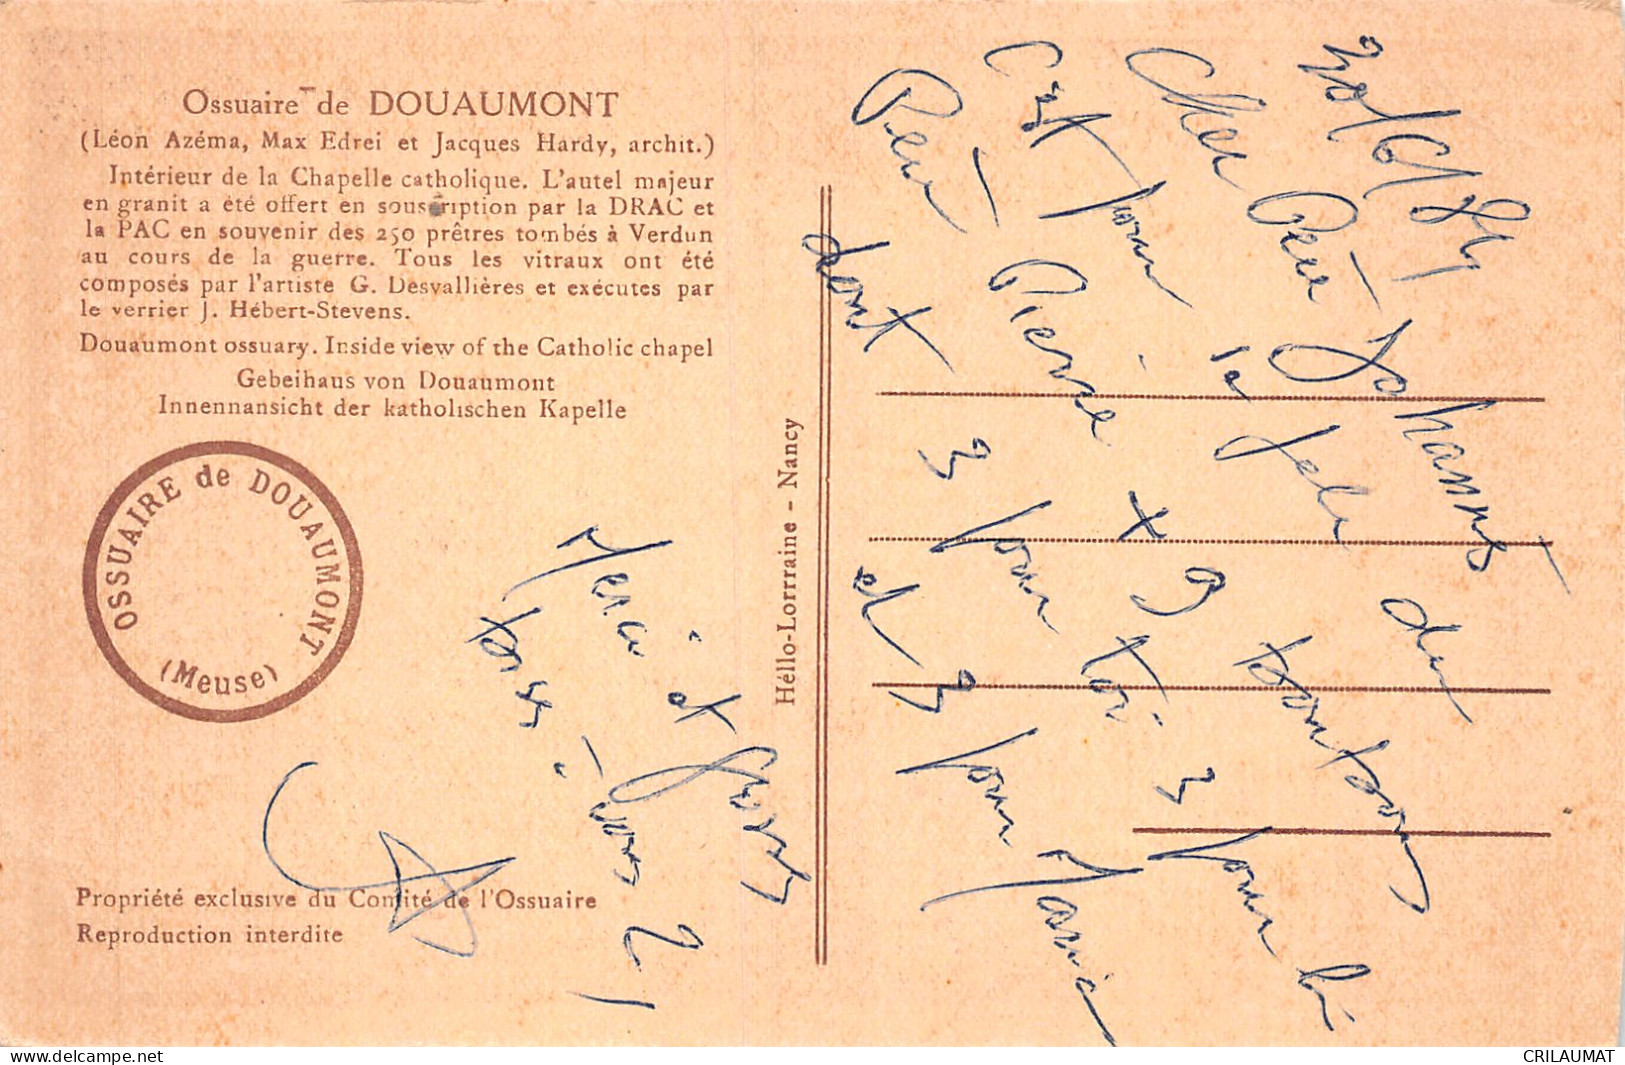 Ossuaire de DOUAUMONT
(Léon Azéma, Max Edrei et Jacques Hardy, archit.)
Intérieur de la Chapelle catholique. L'autel majeur
en granit a été offert en souscription par la DRAC et
la PAC en souvenir des 250 prêtres tombés à Verdun
au cours de la guerre. Tous les vitraux ont été
composés par l'artiste G. Desvallières et exécutes par
le verrier J. Hébert-Stevens.
Douaumont ossuary. Inside view of the Catholic chapel
Gebeihaus von Douaumont
Innennansicht der katholischen Kapelle
OSSUAIRE de DOUAUMONT
(Meuse)
Propriété exclusive du Comité de l'Ossuaire
Reproduction interdite
Héllo-Lorraine - Nancy
Cher Père Johannes
C'est pour la fete du
Père Pierre + 9 bonbons
dont 3 pour toi 3 pour lui
et 3 pour Mamie
Merci et grosses
bises à vous 2